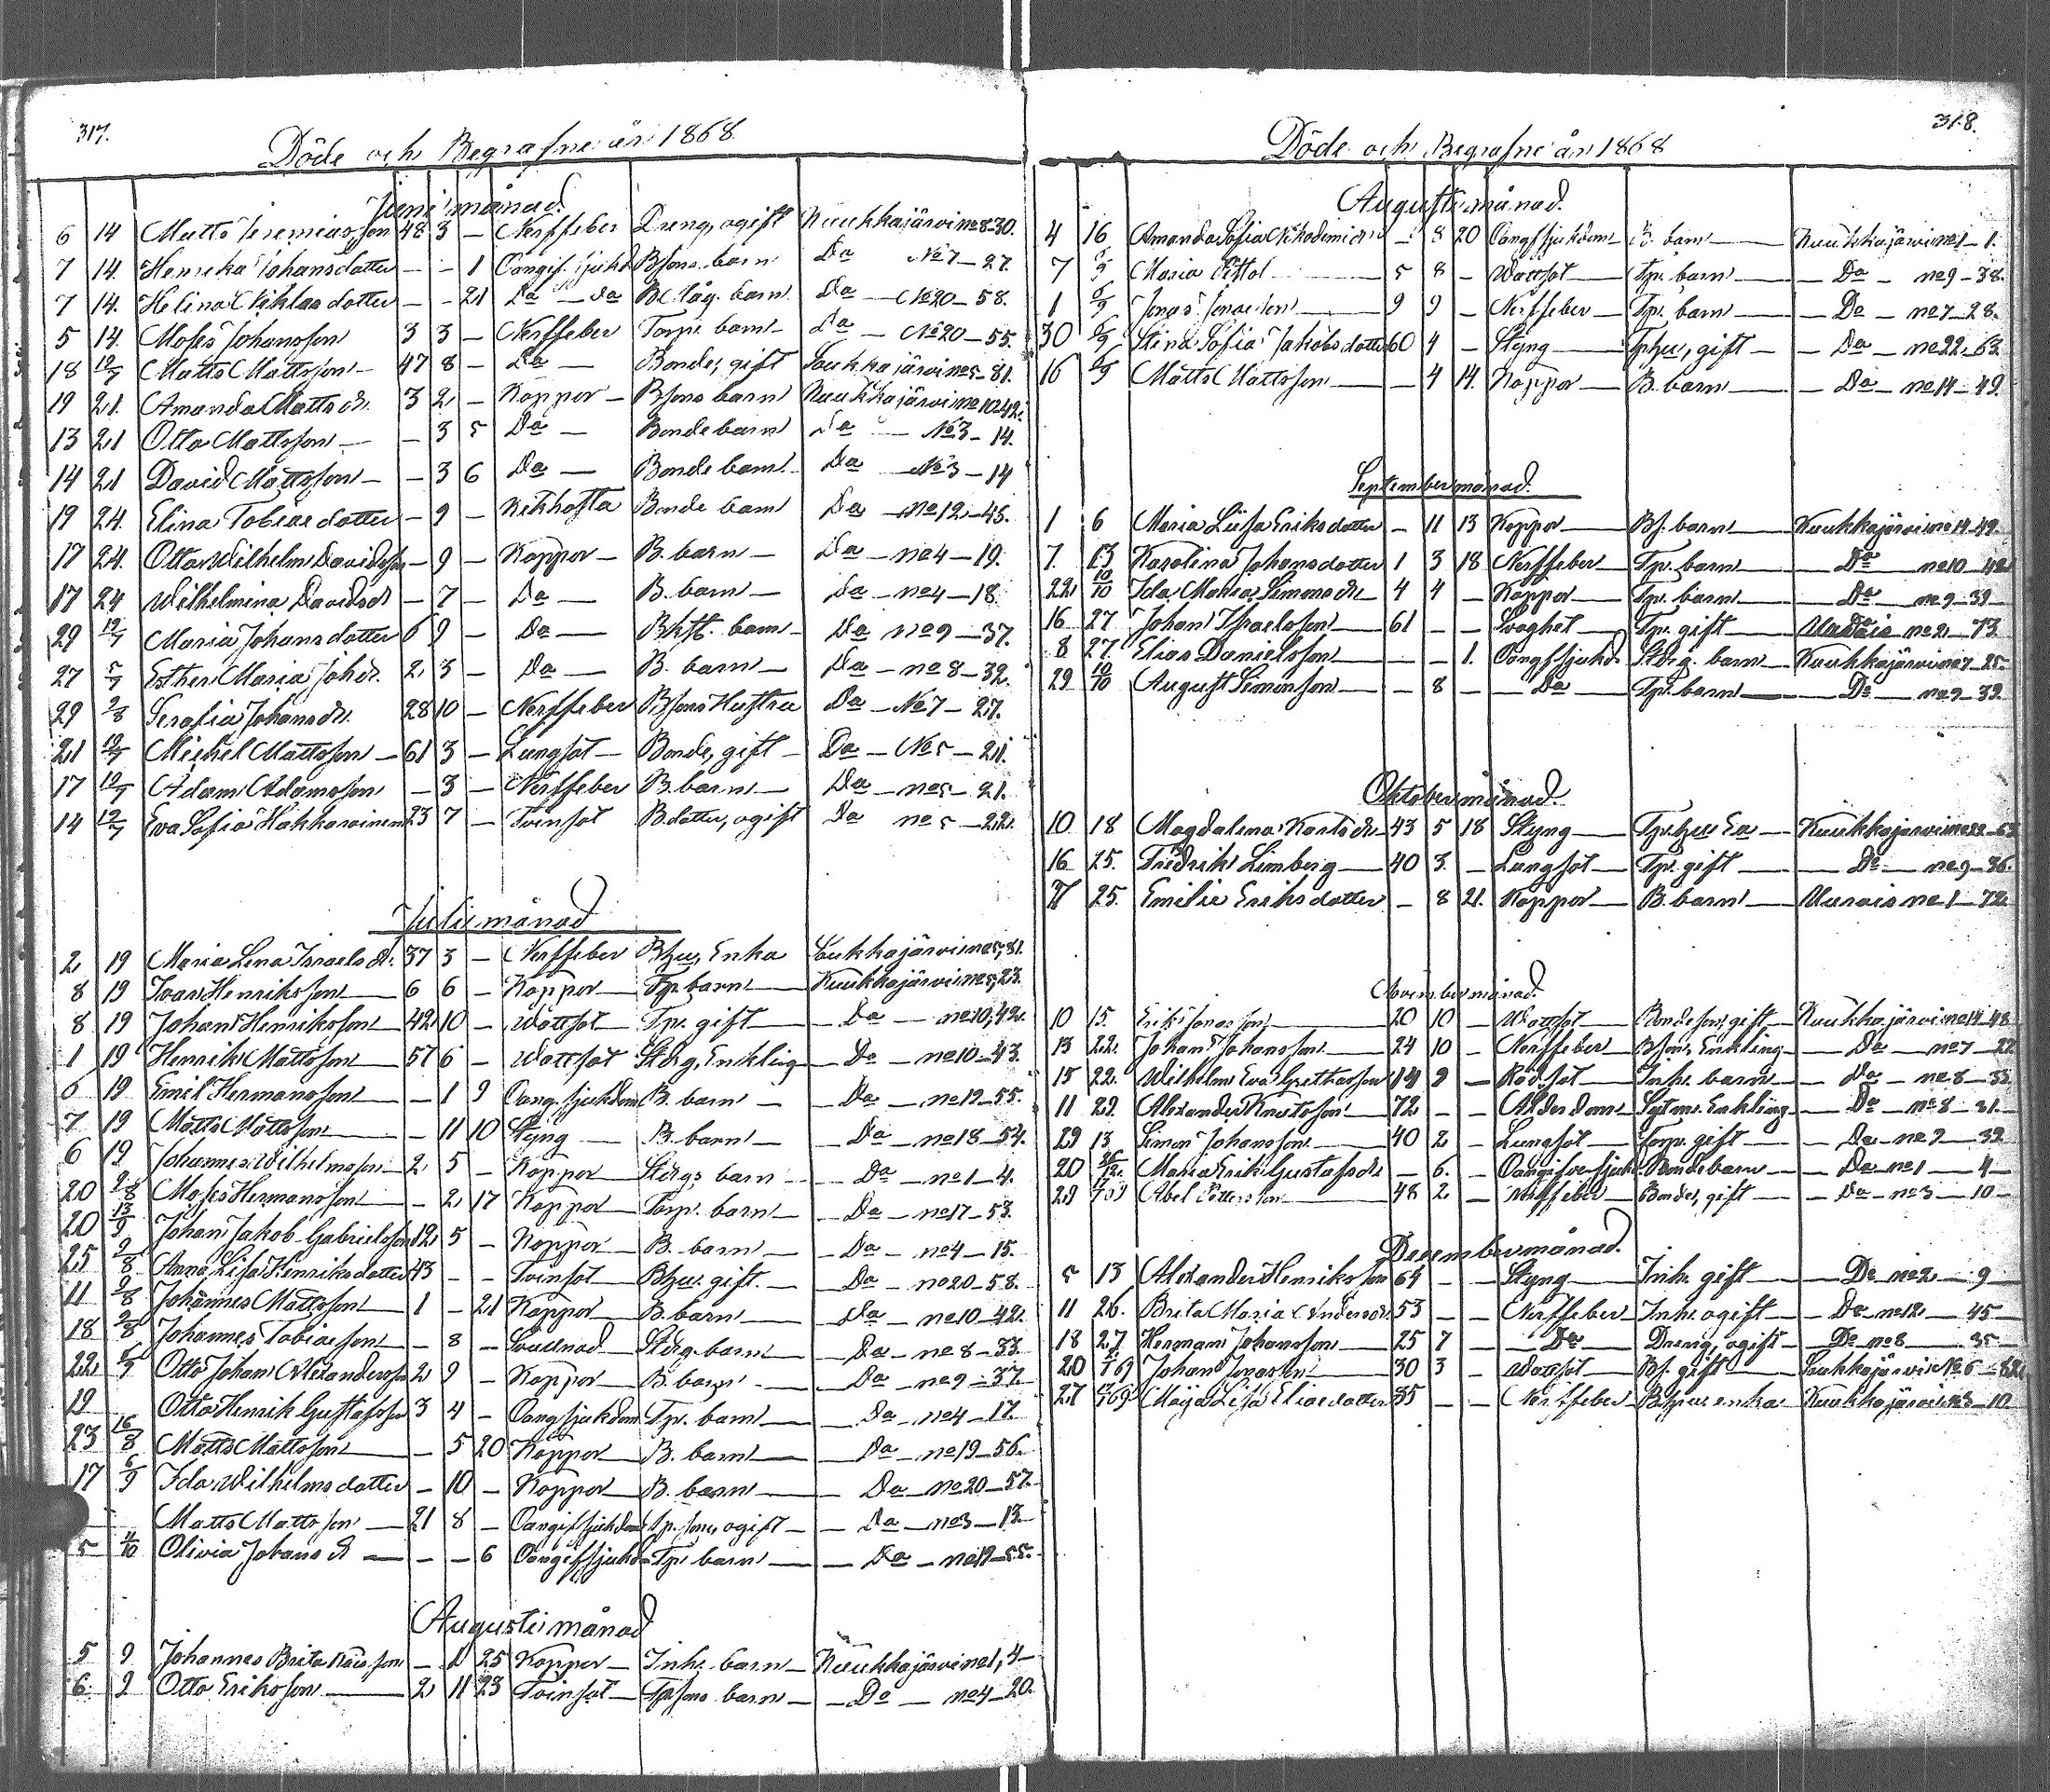 317.
Döde och Begrafne år 1868.
Juni månad.
6 14 Matts Jeremiasson 48 3 — Nerffeber Dreng, ogift Kuukkajärvi no 8-30.
7 14. Henrika Johansdotter — - 1 Oangif. sjukd. Bsons barn Da No 7 - 27.
7 14. Helina Niklasdotter — - 21 Da — da barn Da — No 20 - 58.
5 14. Moses Johansson 3 3 — Nerffeber Torp. barn Da — No 20 - 55.
18 12/7 Matts Mattsson — 47 8 — Da — Bonde, gift Loukkajärvi no 5 - 81.
19 21. Amanda Matts dr. 3 2 — Koppor — Bsons barn Kuukkajärvi no 10-42.
13 21 Otto Mattsson — — 3 5 Da — Bondebarn Da — No 3 - 14.
14 21 David Mattsson — — 3 6 Da — Bonde barn Da — No 3 - 14
19 24. Elina Tobiasdotter — 9 — Kikhosta Bonde barn Da — no 12 - 45.
17 24. Otto Wilhelm Davidsson — 9 — Koppor — B. barn — Da — no 4 - 19.
17 24 Wilhelmina Davidsd — 7 — Da — B. barn — Da — no 4 - 18.
29 12/7 Maria Johansdotter 6 9 — Da — barn — Da no 9 - 37.
27 5/7 Esther Maria Johdr. 2 3 — Da — B. barn — Da — no 8 - 32.
29 2/8 Serafia Johansdr. 28 10 — Nerffeber Bsons Hustru Da — No 7 - 27.
21 12/7 Michel Mattsson — 61 3 — Lungsot — Bonde, gift — Da — No 5 - 21.
17 12/7 Adam Adamsson — 3 — Nerffeber B. barn — Da — no 5 - 21.
14 12/7 Eva Sofia Hakkarainen 23 7 — Tvinsot Bdotter, ogift Da no 5 - 22.
Juli månad
2 19 Maria Lena Israels dr. 37 3 — Nerffeber Bhu, Enka Loukkajärvi no 5, 81.
8 19 Ivar Henriksson 6 6 — Koppor — Tp. barn Kuukkajärvi no 5, 23.
8 19 Johan Henriksson 42 10 — Wattsot — Tp. gift — Da — no 10, 42.
1 19 Henrik Mattsson 57 6 — Wattsot Stdrg, Enkling — Da — no 10 - 43.
6 19 Emil Hermansson — 1 9 Oang. sjukdom B. barn — Da — no 19 - 55.
7 19 Matts Mattsson — 11 10 Styng — B. barn — Da — no 18 - 54.
6 19 Johannes Wilhelmsson 2 5 — Koppor Stdrgs barn — Da — no 1 - 4.
20 2/8 Moses Hermansson — 2 17 Koppor Torp. barn — Da — no 17 - 53.
20 13/9 Johan Jakob Gabrielsson 12 5 — Koppor — B. barn — Da — no 4 - 15.
25 2/8 Anna Lisa Henriksdotter 43 — — Tvinsot — Bhu. gift. — Da — no 20 - 58.
11 2/8 Johannes Mattsson 1 — 21 Koppor — B. barn — Da — no 10 - 42.
18 2/8 Johannes Tobiasson — 8 — Svulnad Stdrg. barn — Da — no 8 - 33.
22 6/9 Otto Johan Alexandersson 2 9 — Koppor — B. barn — Da — no 9 - 37.
19 Otto Henrik Gustafsson 3 4 — Oang sjukdom Tp. barn — Da — no 4 - 17.
23 16/8 Matts Mattsson — 5 20 Koppor B. barn — Da — no 19 - 56.
17 6/9 Ida Wilhelmsdotter — 10 — Koppor B. barn — Da — no 20 - 57.
Matts Mattsson — 21 8 — Oangif. sjukdom Tp. son, ogift — Da — no 3 - 13.
5 4/10 Olivia Johans dr — — 6 Oangif sjukd — Tp. barn — Da — no 19 - 55.
Augusti månad
5 9 Johannes Brita Kaisason — 1 25 Koppor — Inh. barn — Kuukkajärvi no 1, 4 —
6. 9 Otto Eriksson — 2 11 23 Tvinsot — Tpsons barn — Da — no 4 - 20.
318.
Döde och Begrafne år 1868
Augusti månad.
4 16 Amanda Sofia Nikodemi dr — 8 20 Oang sjukdom B. barn — Kuukkajärvi no 1 - 1.
7 6/9 Maria — 5 8 — Wattsot — Tp. barn — Da — no 9 - 38.
1 6/9 Jonas Jonasson 9 9 — Nerffeber — Tp. barn — Da — no 7 - 28.
30 6/9 Stina Sofia Jakobsdotter 60 4 — Styng — Tphu, gift — Da — no 22 - 63.
16 6/9 Matts Mattsson — 4 14. Koppor — B. barn — Da — no 14 - 49.
September månad.
1 6 Maria Lisa Eriksdotter — 11 13 Koppor — Bs. barn — Kuukkajärvi no 14 - 49.
7. 13 Karolina Johansdotter 1 3 18 Nerffeber — Tp. barn — Da — no 10 - 42
22 10/10 Ida Maria Simonsdr — 4 4 — Koppor — Tp. barn — Da — no 9 - 39 —
16 27 Johan Israelsson — 61 — — Svaghet — Tp. gift — Murais no 2 - 73.
8 27. Elias Danielsson — — 1. Oang sjukd. Stdrg. barn — Kuukkajärvi no 7 - 25 —
29 10/10 August Simonsson — 8 — Da — Tp. barn — Da — no 9 - 39.
Oktober månad.
10 18 Magdalena Karls dr — 43 5 18 Styng — Tp. hu Ea — Kuukkajärvi no 22 - 63
16 25. Fredrik Limberg — 40 3. — Lungsot — Tp. gift — Da — no 9 - 36.
25. Emilie Eriksdotter — 8 21. Koppor — B. barn — Murais no 1 - 72
November månad.
10 15. Erik Jonasson 20 10 — Wattsot — Bondeson, gift — Kuukkajärvi no 14 - 48
13 22. Johan Johansson 24 10 — Nerffeber — Bson, Enkling — Da — no 7 - 27.
15 22. Wilhelm Eva Grethasson 14 9 — Rödsot — Inh. barn — Da — no 8 - 33.
11 29. Alexander Knutsson 72 — — Ålderdom Sytm. Enkling — Da — no 8 - 31.
29 13 Simon Johansson — 40 2 — Lungsot — Torp. gift — Da — no 9 - 39.
20 26/12. Maria Erik Gustafsdr — 6. — Oangifven sjukd. Bondebarn — Da no 1 — 4 —
29 Abel Pettersson — 48 2 — Nerffeber — Bonde, gift — Da — no 3 — 10 —
December månad.
5 13 Alexander Henriksson 64 — — Styng — Inh. gift — Da no 2 — 9 —
11 26. Brita Maria Andersdr 53 — — Nerffeber — Inh. ogift — Da — no 12 — 45 —
18 27 Herman Johansson 25 7 — Da — Dreng, ogift — Da no 8 — 35 —
20 Johan Jonasson 30 3 — Wattsot — Bs. gift — Loukkajärvi No 6 - 82.
27 Maja Lisa Eliasdotter 35 — — Nerffeber — Bhu. enka Kuukkajärvi no 3 - 10